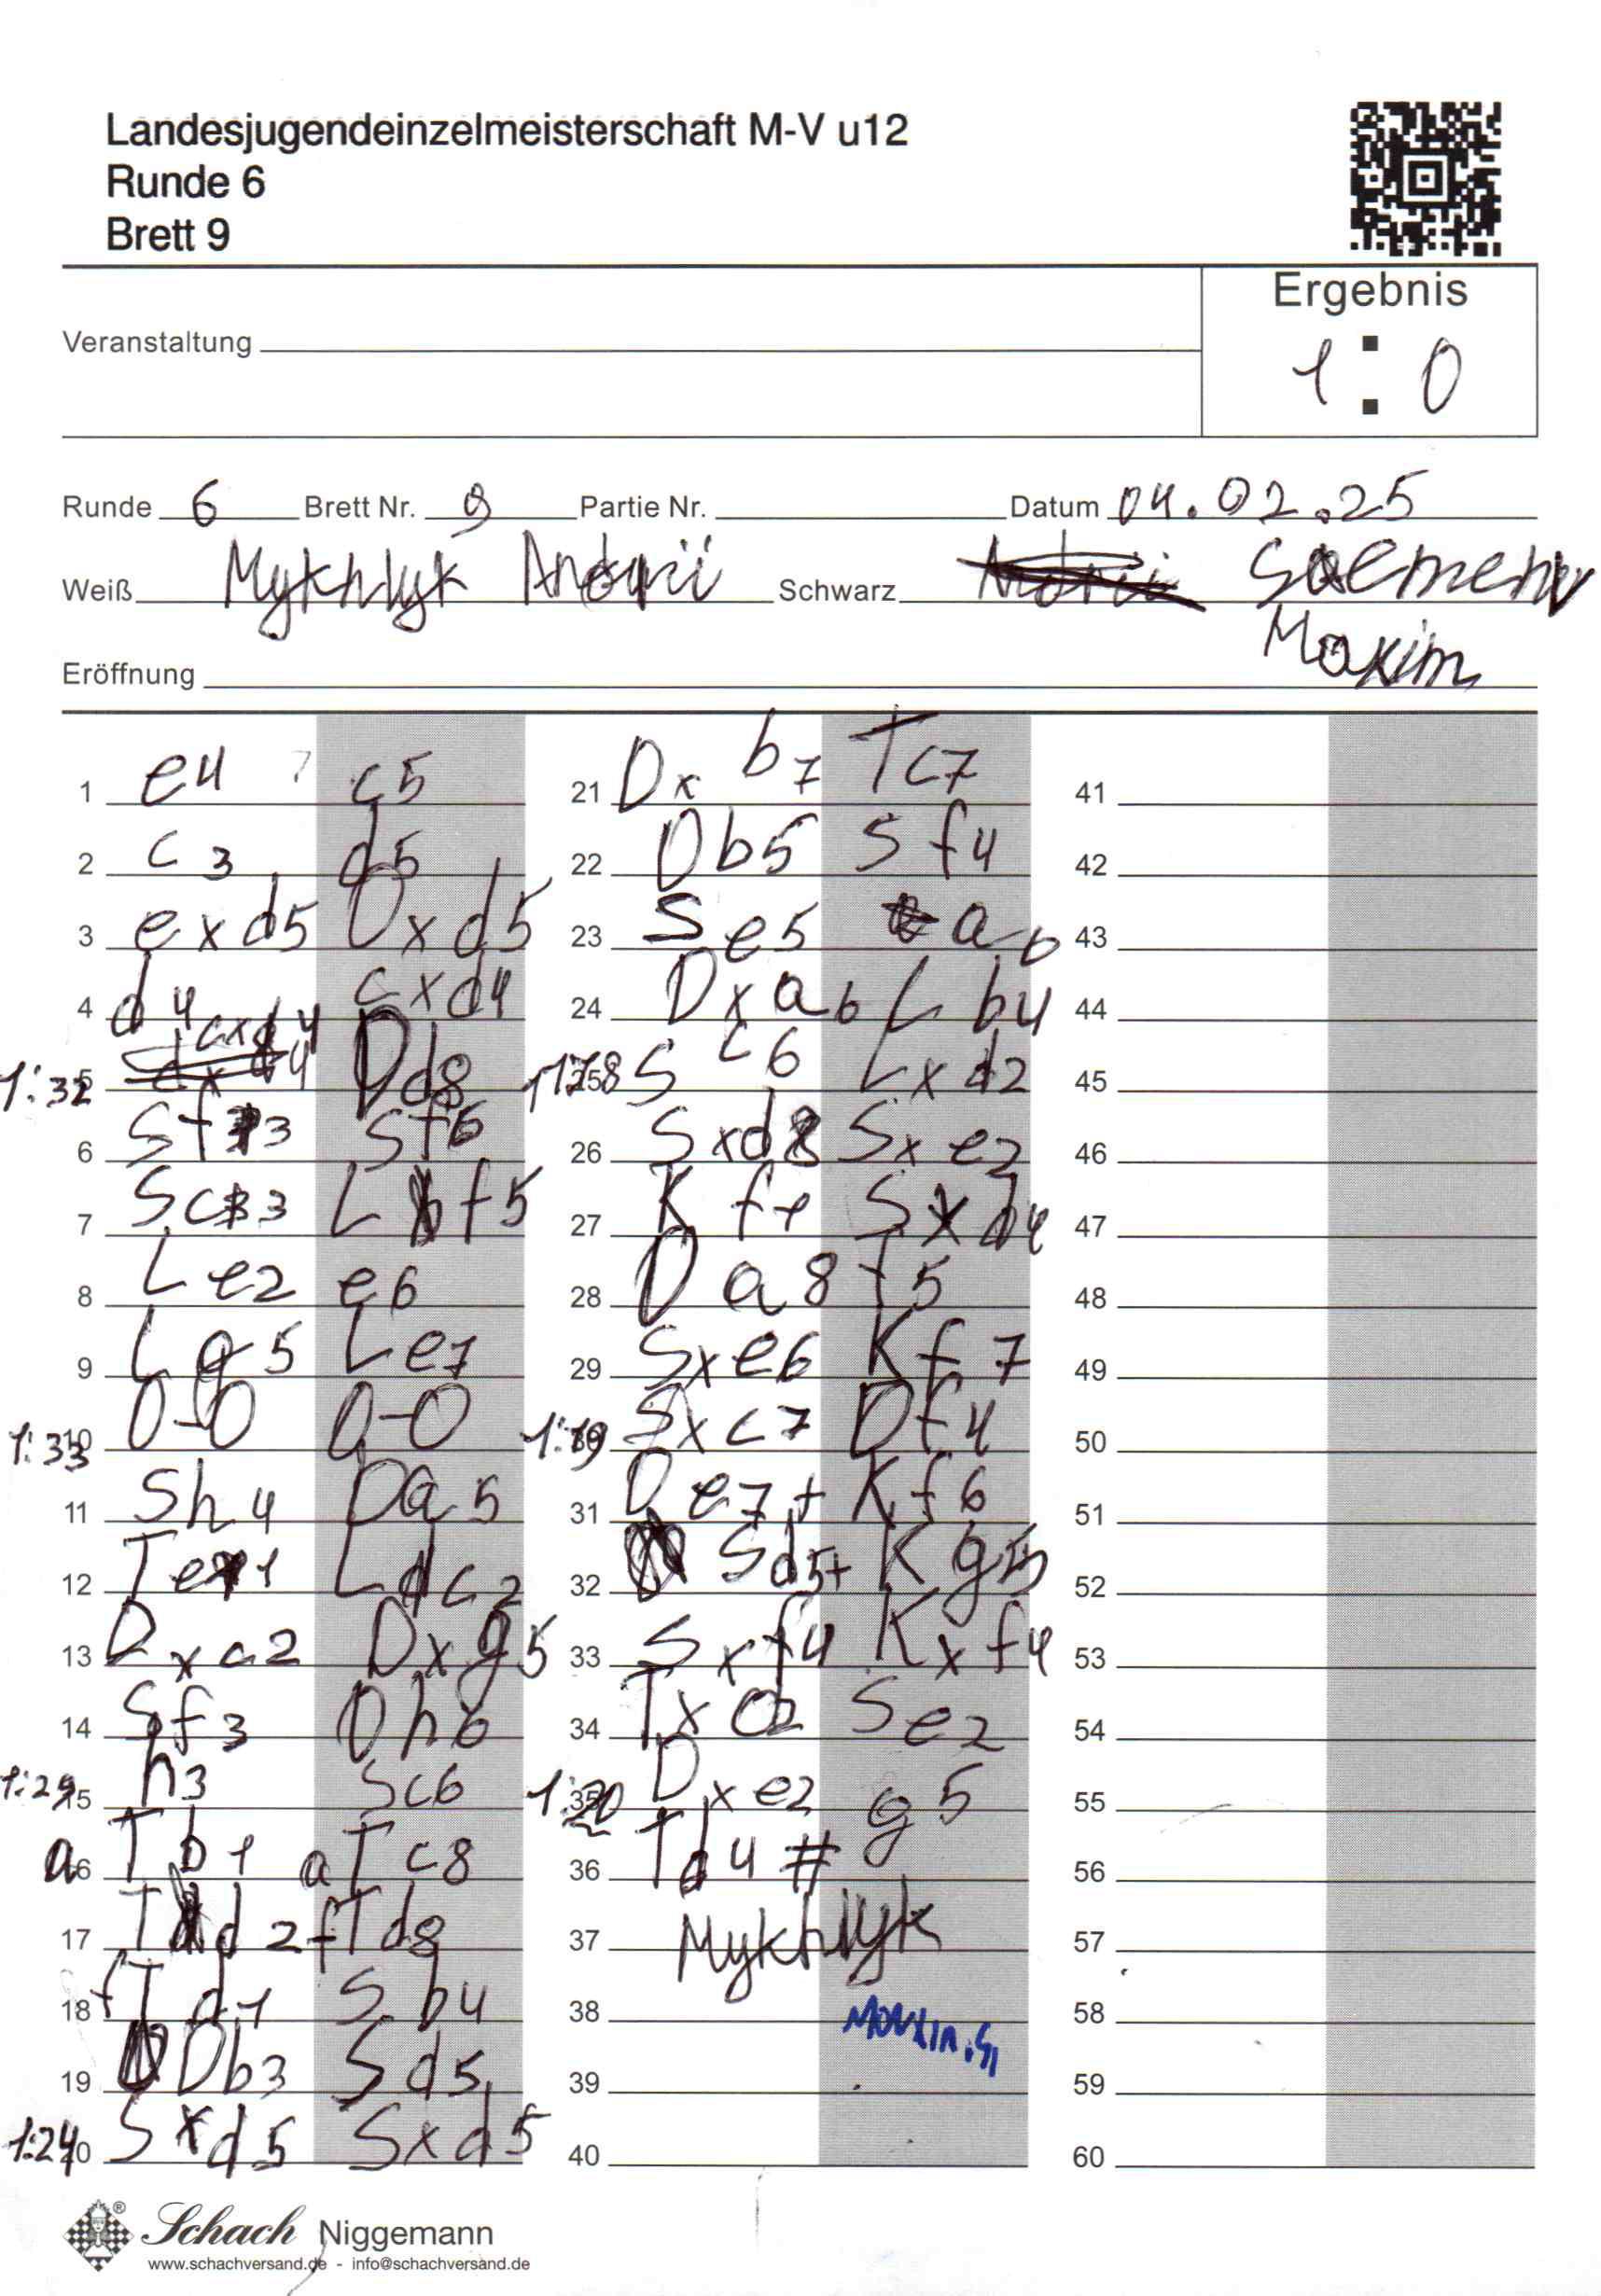 Landesjugendeinzelmeisterschaft M-V u12
Runde 6
Brett 9
Ergebnis
1 : 0
Veranstaltung
Runde 6 Brett Nr. 9 Partie Nr. Datum 04.02.25
Weiß Mykhlyk Andrii Schwarz
Maxim
Eröffnung
1 e4 c5
2 c3 d5
3 exd5 Dxd5
4 d4 cxd4
1:32 5 cxd4 Dd8
6 Sf3 Sf6
7 Sc3 Lf5
8 Le2 e6
9 Lg5 Le7
1:33 10 0-0 0-0
11 Sh4 Da5
12 Te1 Lc2
13 Dxc2 Dxg5
14 Sf3 Dh6
1:29 15 h3 Sc6
16 aTb1 aTc8
17 Td2 fTd8
18 fTd1 Sb4
19 Db3 Sd5
1:24 20 Sxd5 Sxd5
21 Dxb7 Tc7
22 Db5 Sf4
23 Se5 a6
24 Dxa6 Lb4
25 Sc6 Lxd2
26 Sxd8 Sxe2
27 Kf1 Sxd4
28 Da8 f5
29 Sxe6 Kf7
1:19 30 Sxc7 Df4
31 De7+ Kf6
32 Sd5+ Kg5
33 Sxf4 Kxf4
34 Txd2 Se2
1:20 35 Dxe2 g5
36 Td4#
37 Mykhlyk
38
39
40
41
42
43
44
45
46
47
48
49
50
51
52
53
54
55
56
57
58
59
60
Schach Niggemann
www.schachversand.de - info@schachversand.de